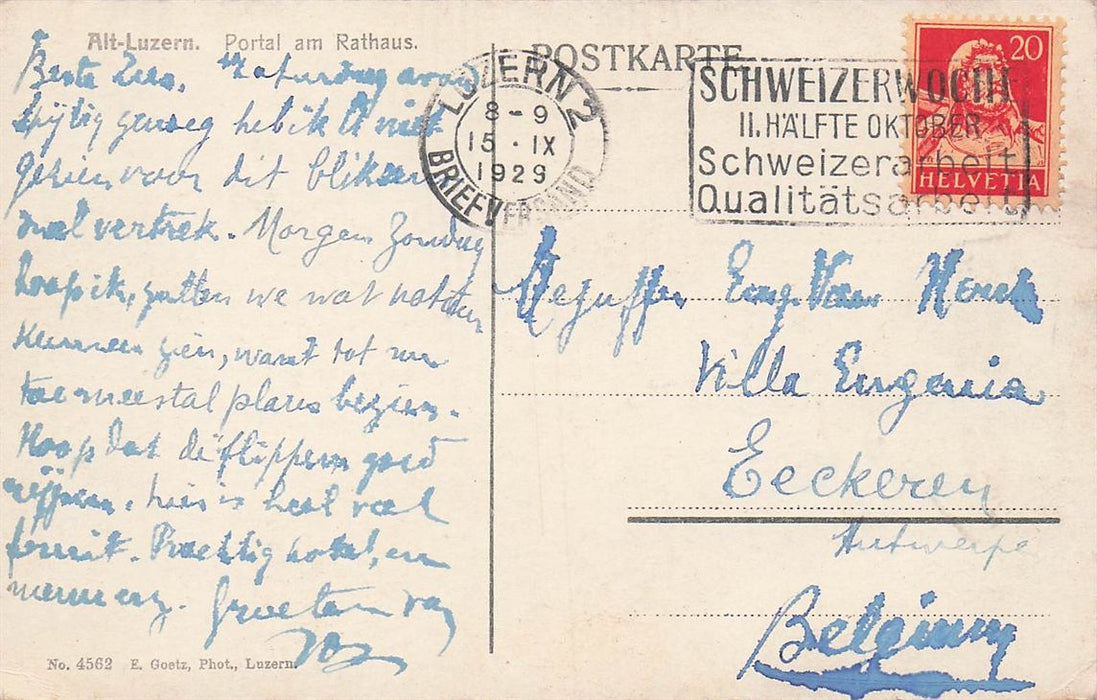 Alt-Luzern. Portal am Rathaus.
POSTKARTE
LUZERN 2
8-9
15.IX
1929
BRIEFVERSAND
SCHWEIZERWOCHE
II. HÄLFTE OKTOBER
Schweizerarbeit
Qualitätsarbeit
20
HELVETIA
Beste Zus, Zaturdag avond
spijtig genoeg heb ik U niet
gezien voor dit
vertrek. Morgen Zondag
hoop ik, zullen we wat
kunnen zien, want tot nu
toe meestal plans bezien.
Hoop dat de flippers goed
rijpen, hier is heel veel
fruit. Prachtig hotel, en
Groeten van
Mejuffer Eug. Van
Villa Eugenia
Eeckeren
Antwerpen
Belgium
No. 4562 E. Goetz, Phot., Luzern